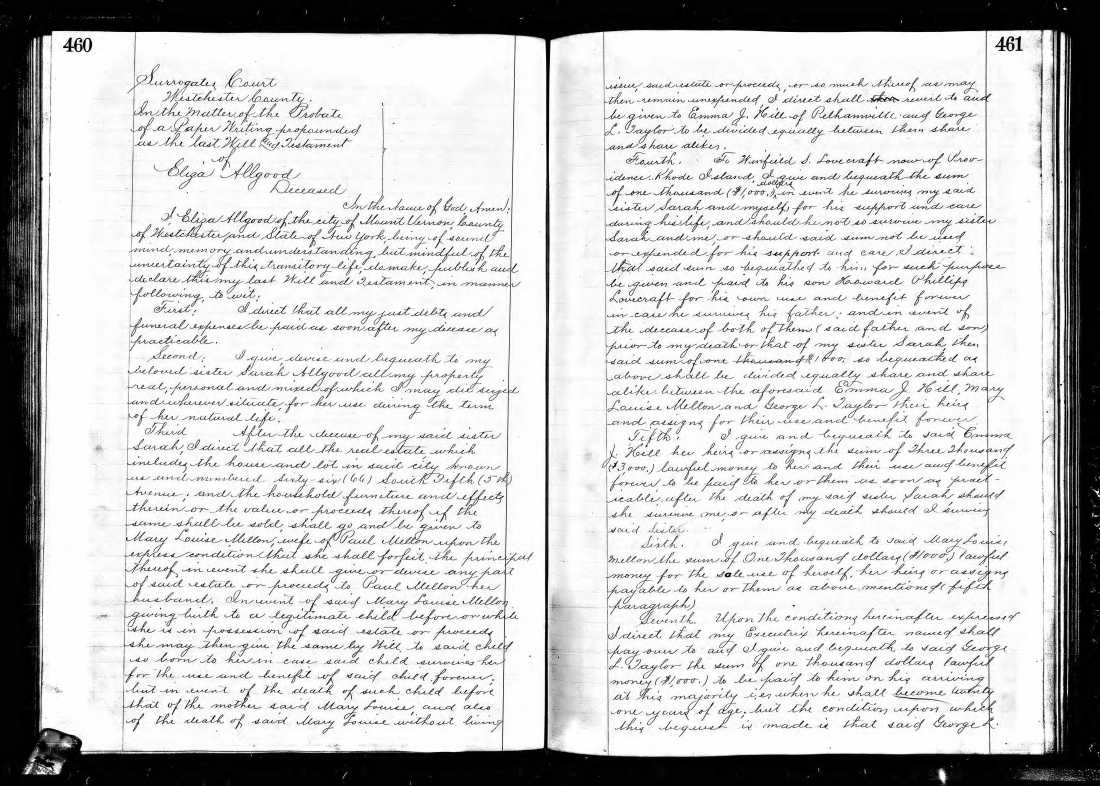 460
Surrogates Court
Westchester County.
In the Matter of the Probate
of a Paper Writing propounded
as the last Will and Testament
of
Eliza Allgood
Deceased
In the Name of God; Amen:
I Eliza Allgood of the city of Mount Vernon County
of Westchester and State of New York, being of sound
mind, memory and understanding, but mindful of the
uncertainty of this transitory life, do make, publish and
declare this my last Will and Testament, in manner
following, to wit:
First: I direct that all my just debts and
funeral expenses be paid as soon after my decease as
practicable.
Second: I give devise and bequeath to my
beloved sister Sarah Allgood all my property
real, personal and mixed of which I may die seized
and wherever situate, for her use during the term
of her natural life.
Third After the decease of my said sister
Sarah, I direct that all the real estate which
includes the house and lot in said city known
as and numbered sixty six (66) South Fifth (5th)
Avenue; and the household furniture and effects
therein or the value or proceeds thereof if the
same shall be sold, shall go and be given to
Mary Louise Mellon, wife of Paul Mellon upon the
express condition that she shall forfeit the principal
thereof, in event she shall give or devise any part
of said estate or proceeds to Paul Mellon her
husband. In event of said Mary Louise Mellon
giving birth to a legitimate child before or while
she is in possession of said estate or proceeds
she may then give the same by Will, to said child
so born to her in case said child survives her
for the use and benefit of said child forever;
but in event of the death of such child before
that of the mother said Mary Louise, and also
of the death of said Mary Louise without living
461
issue said estate or proceeds, or so much thereof as may
then remain unexpended I direct shall revert to and
be given to Emma J. Hill of Pelhamville and George
L. Taylor to be divided equally between them share
and share alike.
Fourth. To Winfield S. Lovecraft now of Prov-
idence Rhode Island, I give and bequeath the sum
of one thousand dollars ($1,000.), in event he survives my said
sister Sarah and myself, for his support and care
during his life, and should he not so survive my sister
Sarah and me, or should said sum not be used
or expended for his support and care I direct:
that said sum so bequeathed to him for such purpose
be given and paid to his son Howard Phillips
Lovecraft for his own use and benefit forever
in case he survives his father; and in event of
the decease of both of them (said father and son)
prior to my death or that of my sister Sarah, then
said sum of one thousand $1000. so bequeathed as
above shall be divided equally share and share
alike between the aforesaid Emma J. Hill, Mary
Louise Mellon and George L. Taylor their heirs
and assigns for their use and benefit forever.
Fifth: I give and bequeath to said Emma
J. Hill her heirs or assigns the sum of Three Thousand
($3,000.) lawful money to her and their use and benefit
forever to be paid to her or them as soon as pract-
icable, after the death of my said sister Sarah should
she survive me, or after my death should I survive
said sister.
Sixth. I give and bequeath to said Mary Louise
Mellon the sum of One Thousand dollars, ($1000.) lawful
money for the sole use of herself, her heirs or assigns
payable to her or them as above mentioned (fifth
paragraph)
Seventh Upon the conditions hereinafter expressed
I direct that my Executrix hereinafter named shall
pay over to and I give and bequeath to said George
L. Taylor the sum of one thousand dollars lawful
money ($1,000.) to be paid to him on his arriving
at his majority i,e, when he shall become twenty
one years of age, but the condition upon which
this bequest is made is that said George L.